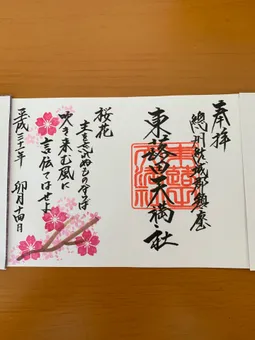 奉拝
總州結城郡鎮座
東蕗田天満社
桜花
主を忘れぬものならば
吹き来む風に
言伝てはせよ
平成三十一年 卯月十四日